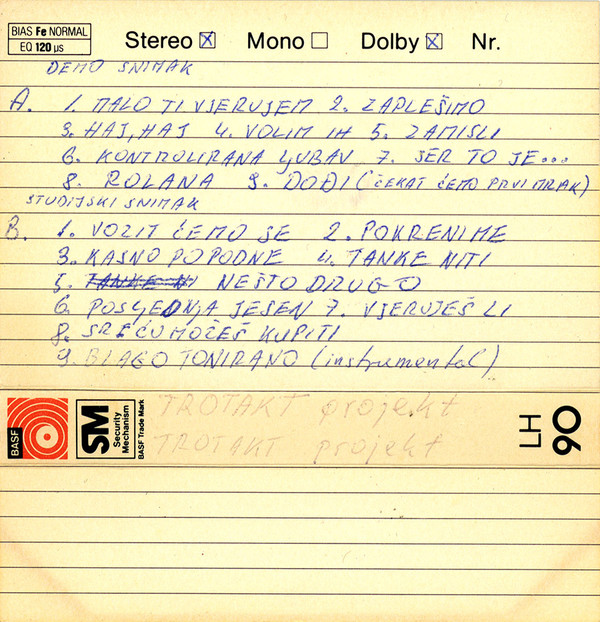 BIAS Fe NORMAL
EQ 120 µs
Stereo ☒ Mono ☐ Dolby ☒ Nr.
DEMO SNIMAK
A. 1. MALO TI VJERUJEM 2. ZAPLEŠIMO
3. HAJ, HAJ 4. VOLIM IH 5. ZAMISLI
6. KONTROLIRANA LJUBAV 7. JER TO JE...
8. ROLANA 9. DOĐI (ČEKAT ĆEMO PRVI MRAK)
STUDIJSKI SNIMAK
B. 1. VOZIT ĆEMO SE 2. POKRENI ME
3. KASNO POPODNE 4. TANKE NITI
5. TANKE NI NEŠTO DRUGO
6. POSLJEDNJA JESEN 7. VJERUJEŠ LI
8. SREĆU MOČEŠ KUPITI
9. BLAGO TONIRANO (instrumental)
BASF
SM
Security
Mechanism
BASF Trade Mark
TROTAKT projekt
TROTAKT projekt
LH
90